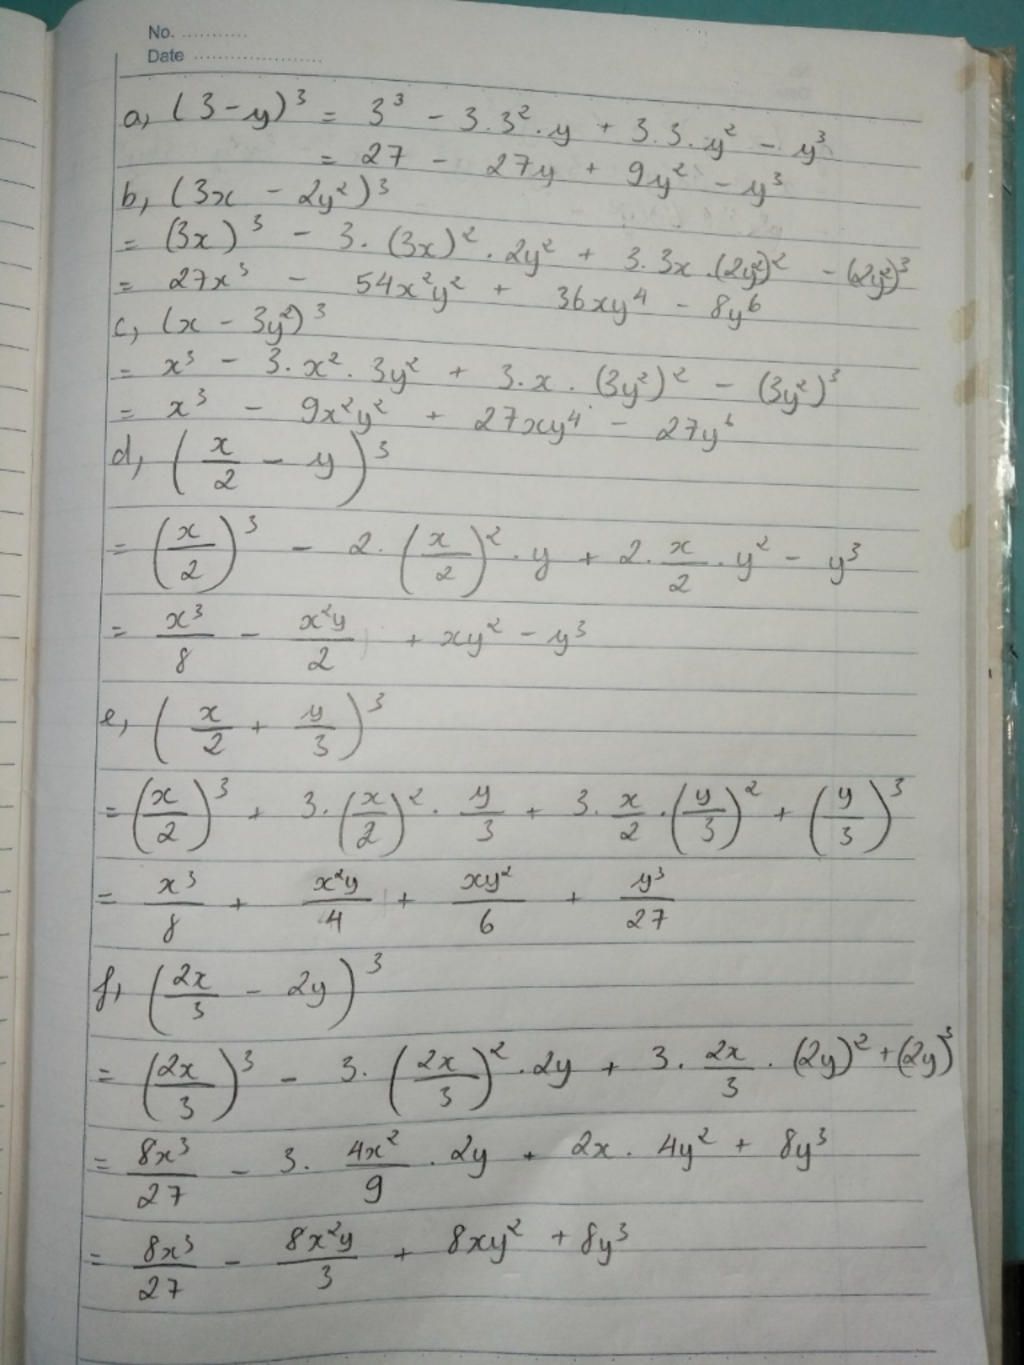 No. ...........
Date .....................
a, (3 - y)³ = 3³ - 3.3².y + 3.3.y² - y³
= 27 - 27y + 9y² - y³
b, (3x - 2y²)³
= (3x)³ - 3.(3x)².2y² + 3.3x.(2y²)² - (2y²)³
= 27x³ - 54x²y² + 36xy⁴ - 8y⁶
c, (x - 3y²)³
= x³ - 3.x².3y² + 3.x.(3y²)² - (3y²)³
= x³ - 9x²y² + 27xy⁴ - 27y⁶
d, (x/2 - y)³
= (x/2)³ - 2.(x/2)².y + 2.x/2.y² - y³
= x³/8 - x²y/2 + xy² - y³
e, (x/2 + y/3)³
= (x/2)³ + 3.(x/2)².y/3 + 3.x/2.(y/3)² + (y/3)³
= x³/8 + x²y/4 + xy²/6 + y³/27
f, (2x/3 - 2y)³
= (2x/3)³ - 3.(2x/3)².2y + 3.2x/3.(2y)² + (2y)³
= 8x³/27 - 3.4x²/9.2y + 2x.4y² + 8y³
= 8x³/27 - 8x²y/3 + 8xy² + 8y³